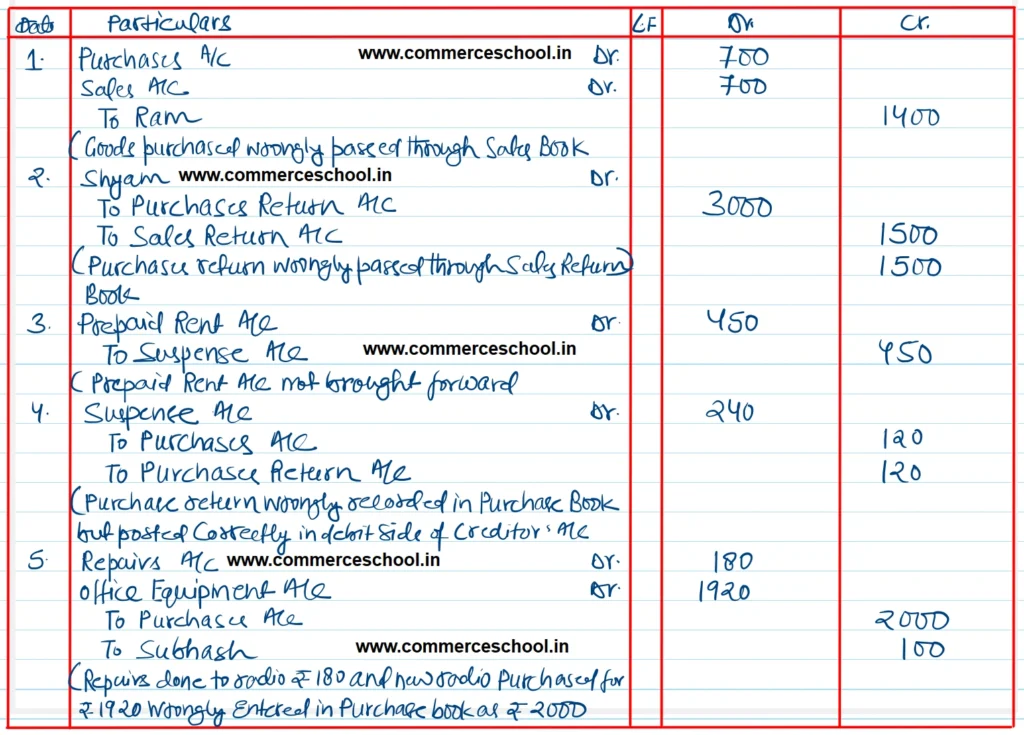 Date Particulars L.F Dr. Cr.
1. Purchases A/C www.commerceschool.in Dr. 700
Sales A/C Dr. 700
To Ram 1400
(Goods purchased wrongly passed through Sales Book
2. Shyam www.commerceschool.in Dr.
To Purchases Return A/C 3000
To Sales Return A/C 1500
(Purchases return wrongly passed through Sales Return) 1500
Book
3. Prepaid Rent A/C Dr. 450
To Suspense A/C www.commerceschool.in 450
(Prepaid Rent A/C not brought forward
4. Suspense A/C Dr. 240
To Purchases A/C 120
To Purchases Return A/C 120
(Purchase return wrongly recorded in Purchase Book
but posted Correctly in debit side of Creditor's A/C
5. Repairs A/C www.commerceschool.in Dr. 180
Office Equipment A/C Dr. 1920
To Purchases A/C 2000
To Subhash www.commerceschool.in 100
(Repairs done to radio ₹ 180 and new radio Purchased for
₹ 1920 Wrongly Entered in Purchase book as ₹ 2000